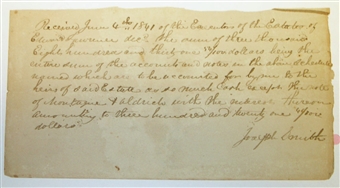 Received June 4th 1841 of the Executors of the Estate of
dec'd the sum of three thousand
Eight hundred and thirty one dollars being the
entire sum of the accounts and notes in the above
against which are to be accounted for by me to the
heirs of said Estate as so much Cash except the note
of Montague & Aldrich with the interest thereon
amounting to three hundred and twenty one
dollars
Joseph Smith